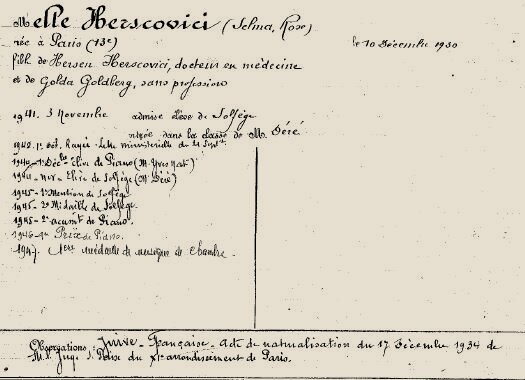 Melle Herscovici (Selma, Rose)
née à Paris (13e) le 10 Décembre 1930
fille de Hersen Herscovici, docteur en médecine
et de Golda Goldberg, sans profession
1941. 3 Novembre admise élève de Solfège
dans la classe de M. Déré
1942. 1er Oct. Rayée. Lettre ministérielle du 21 Sept.
Élève de Piano (M. Yves Nat)
1944 - nov - Élève de Solfège (M. Déré)
1945 - 1e Mention de Solfège
1945 - 2e Médaille de Solfège.
1945 - 2e accessit de Piano.
1946 - Prix de Piano.
1947. 1ère médaille de musique de chambre.
Observations : Juive - Française - Acte de naturalisation du 17 Décembre 1934 de
M. l. Juge d. Paix du XIe arrondissement de Paris.